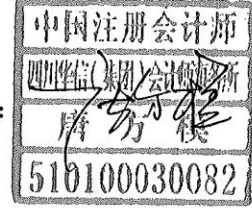 中国注册会计师
四川华信(集团)会计师事务所
:
唐方模
510100030082